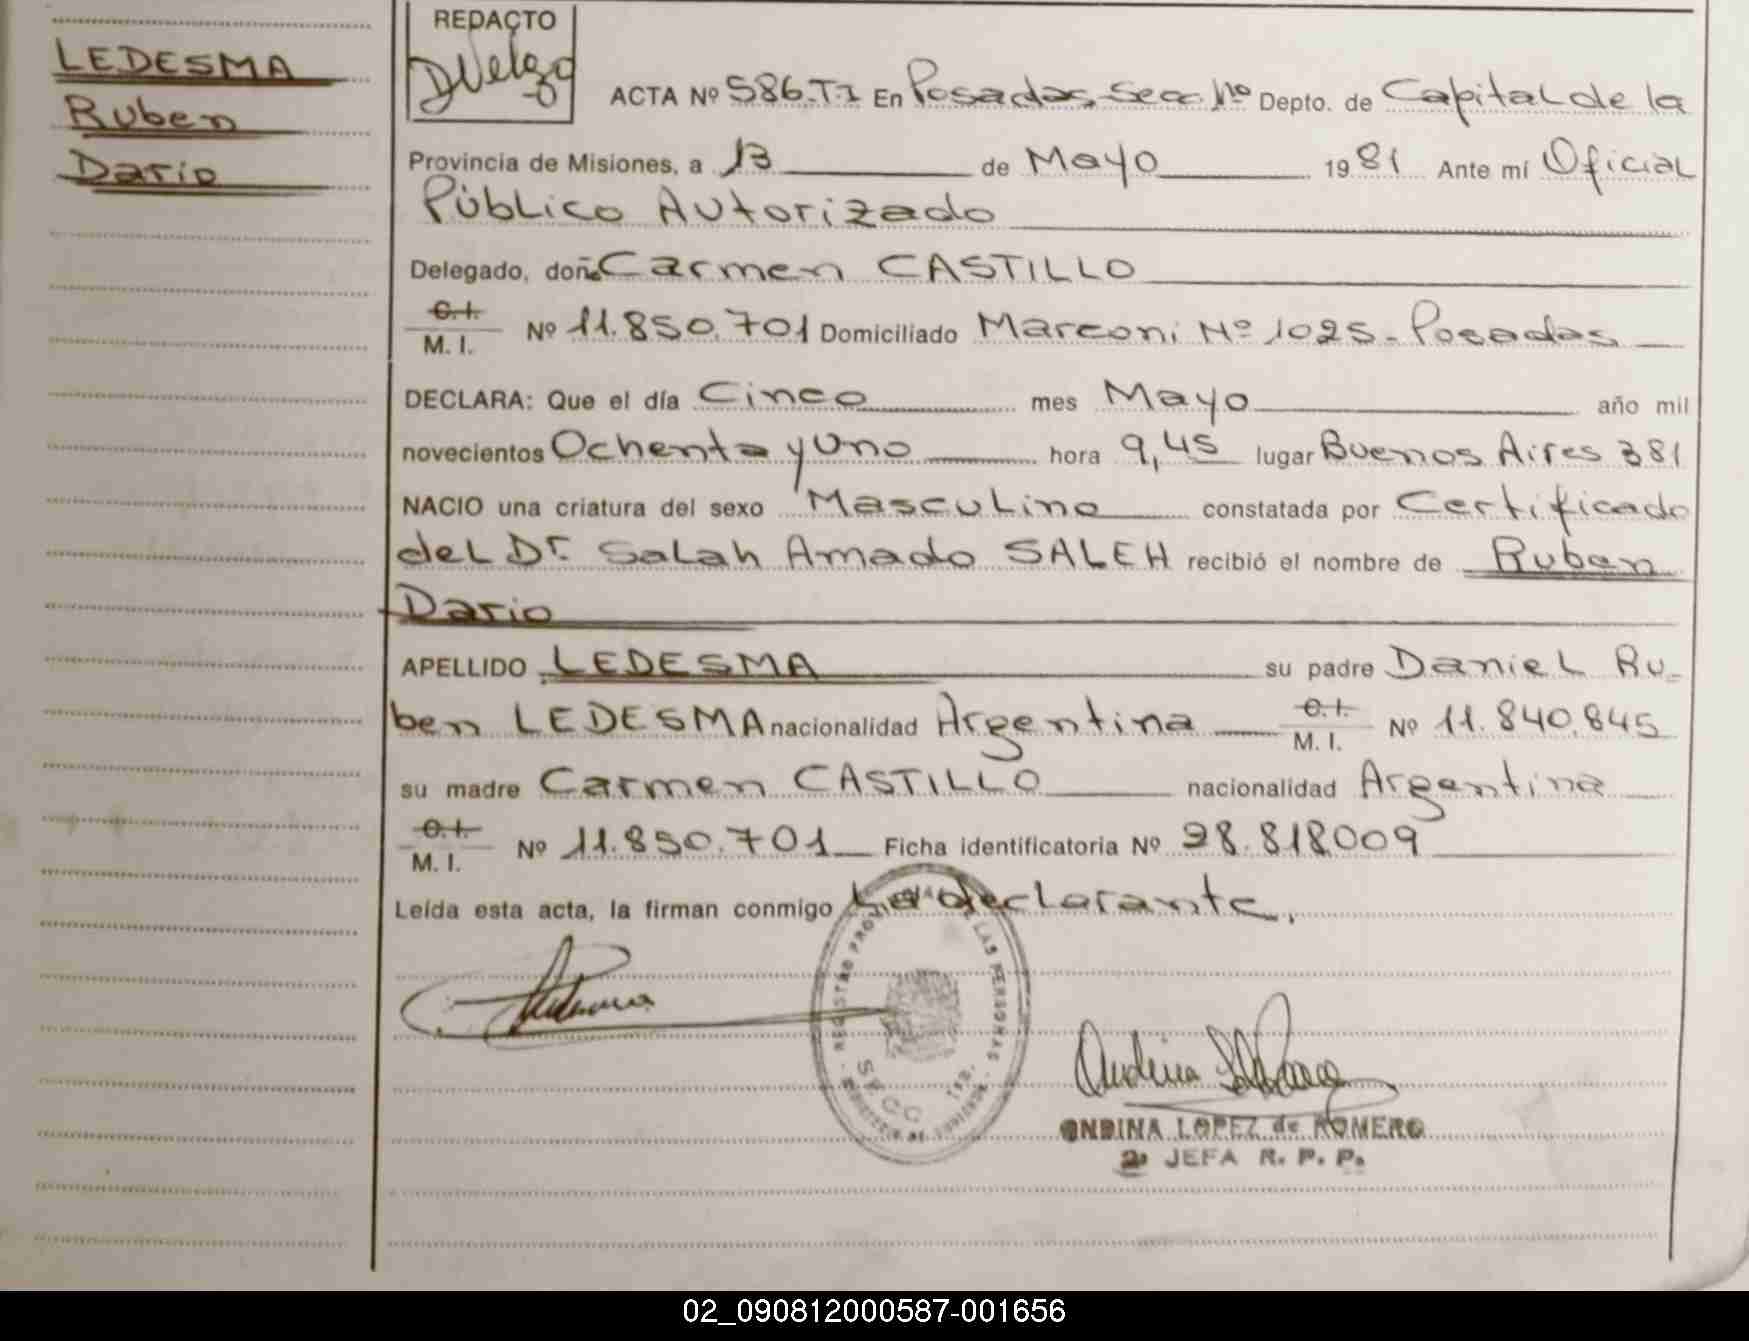 LEDESMA
Ruben
Dario
REDACTO
DVelazo
ACTA Nº 586.T1 En Posadas, Secc. 1º Depto. de Capital de la
Provincia de Misiones, a 13 de Mayo 1981 Ante mí Oficial
Público Autorizado
Delegado, doña Carmen CASTILLO
C.I.
M. I. Nº 11.850.701 Domiciliado Marconi Nº 1025 - Posadas
DECLARA: Que el día Cinco mes Mayo año mil
novecientos Ochenta y Uno hora 9,45 lugar Buenos Aires 381
NACIO una criatura del sexo Masculino constatada por Certificado
del Dr. Salah Amado SALEH recibió el nombre de Ruben
Dario
APELLIDO LEDESMA su padre Daniel Ru-
ben LEDESMA nacionalidad Argentina C.I. M. I. Nº 11.840.845
su madre Carmen CASTILLO nacionalidad Argentina
C.I.
M. I. Nº 11.850.701 Ficha identificatoria Nº 28.818009
Leída esta acta, la firman conmigo La declarante.
REGISTRO PROVINCIAL DE LAS PERSONAS
SECC 1RA.
ONDINA LOPEZ de ROMERO
2º JEFA R. P. P.
02_090812000587-001656